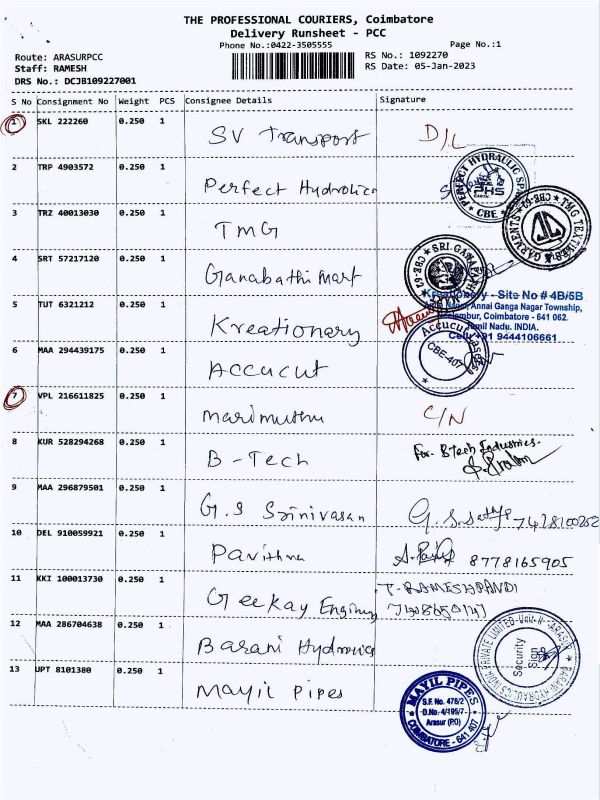 THE PROFESSIONAL COURIERS, Coimbatore
Delivery Runsheet - PCC
Phone No.:0422-3505555
Page No.:1
Route: ARASURPCC
Staff: RAMESH
DRS No.: DCJB109227001
RS No.: 1092270
RS Date: 05-Jan-2023
S No Consignment No Weight PCS Consignee Details Signature
1 SKL 222260 0.250 1 SV Transport D/L
2 TRP 4903572 0.250 1 Perfect Hydrolics
PERFECT HYDRAULIC
PHS
CBE
3 TRZ 40013030 0.250 1 TMG
TMG TEXTILES
GARMENTS
CBE-62
4 SRT 57217120 0.250 1 Ganabathi Mart
SRI GANAPATHI
CBE-62
5 TUT 6321212 0.250 1 Kreationary
Kreationary - Site No # 4B/5B
Annai Ganga Nagar Township,
Coimbatore - 641 062.
Tamil Nadu. INDIA.
Cell: +91 9444106661
6 MAA 294439175 0.250 1 Accucut
Accucut
CBE-407
7 VPL 216611825 0.250 1 Marimuthu C/N
8 KUR 528294268 0.250 1 B-Tech For. Btech Industries.
9 MAA 296879501 0.250 1 G.S Srinivasan
10 DEL 910059921 0.250 1 Pavithra 8778165905
11 KKI 100013730 0.250 1 Geekay Enginng T. RAMESHPANDI
12 MAA 286704638 0.250 1 Barani Hydrolics
PRIVATE LIMITED-Unit-II
Security
Sign
13 UPT 8101380 0.250 1 Mayil Pipes
MAYIL PIPES
S.F. No. 478/2
D.No. 4/195/7
Arasur (P.O)
COIMBATORE - 641 407